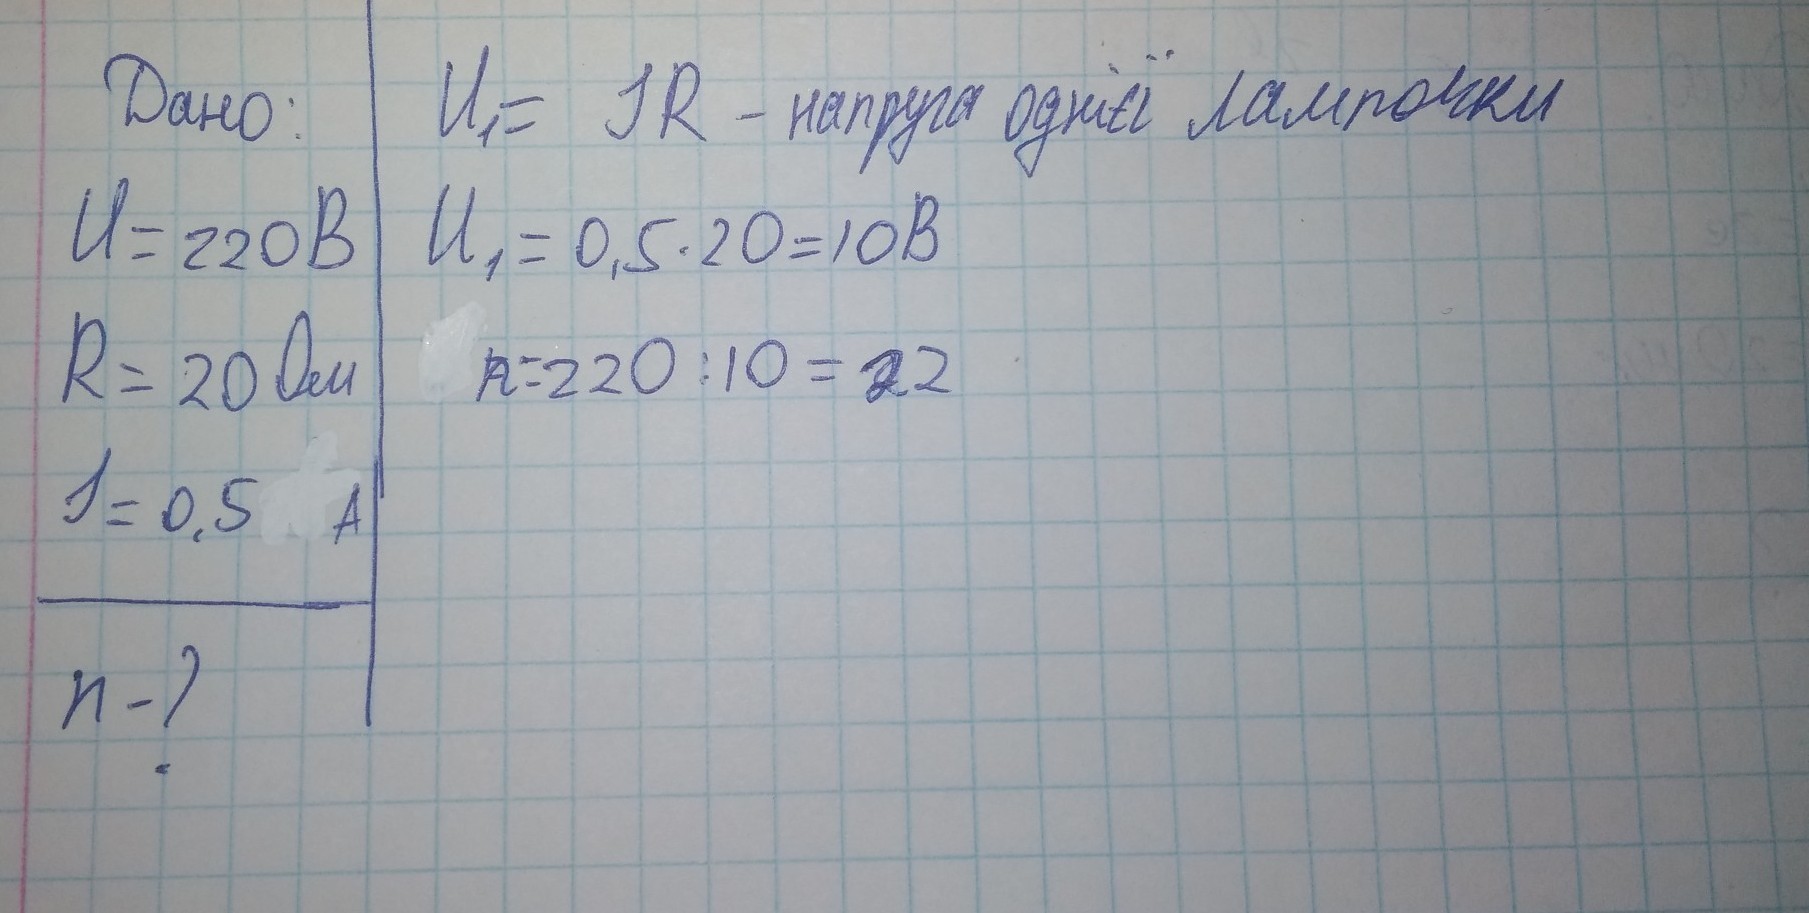 Дано:
U=220В
R=20 Ом
I=0,5 А
n-?
U₁= IR - напруга однієї лампочки
U₁=0,5·20=10В
n=220:10=22